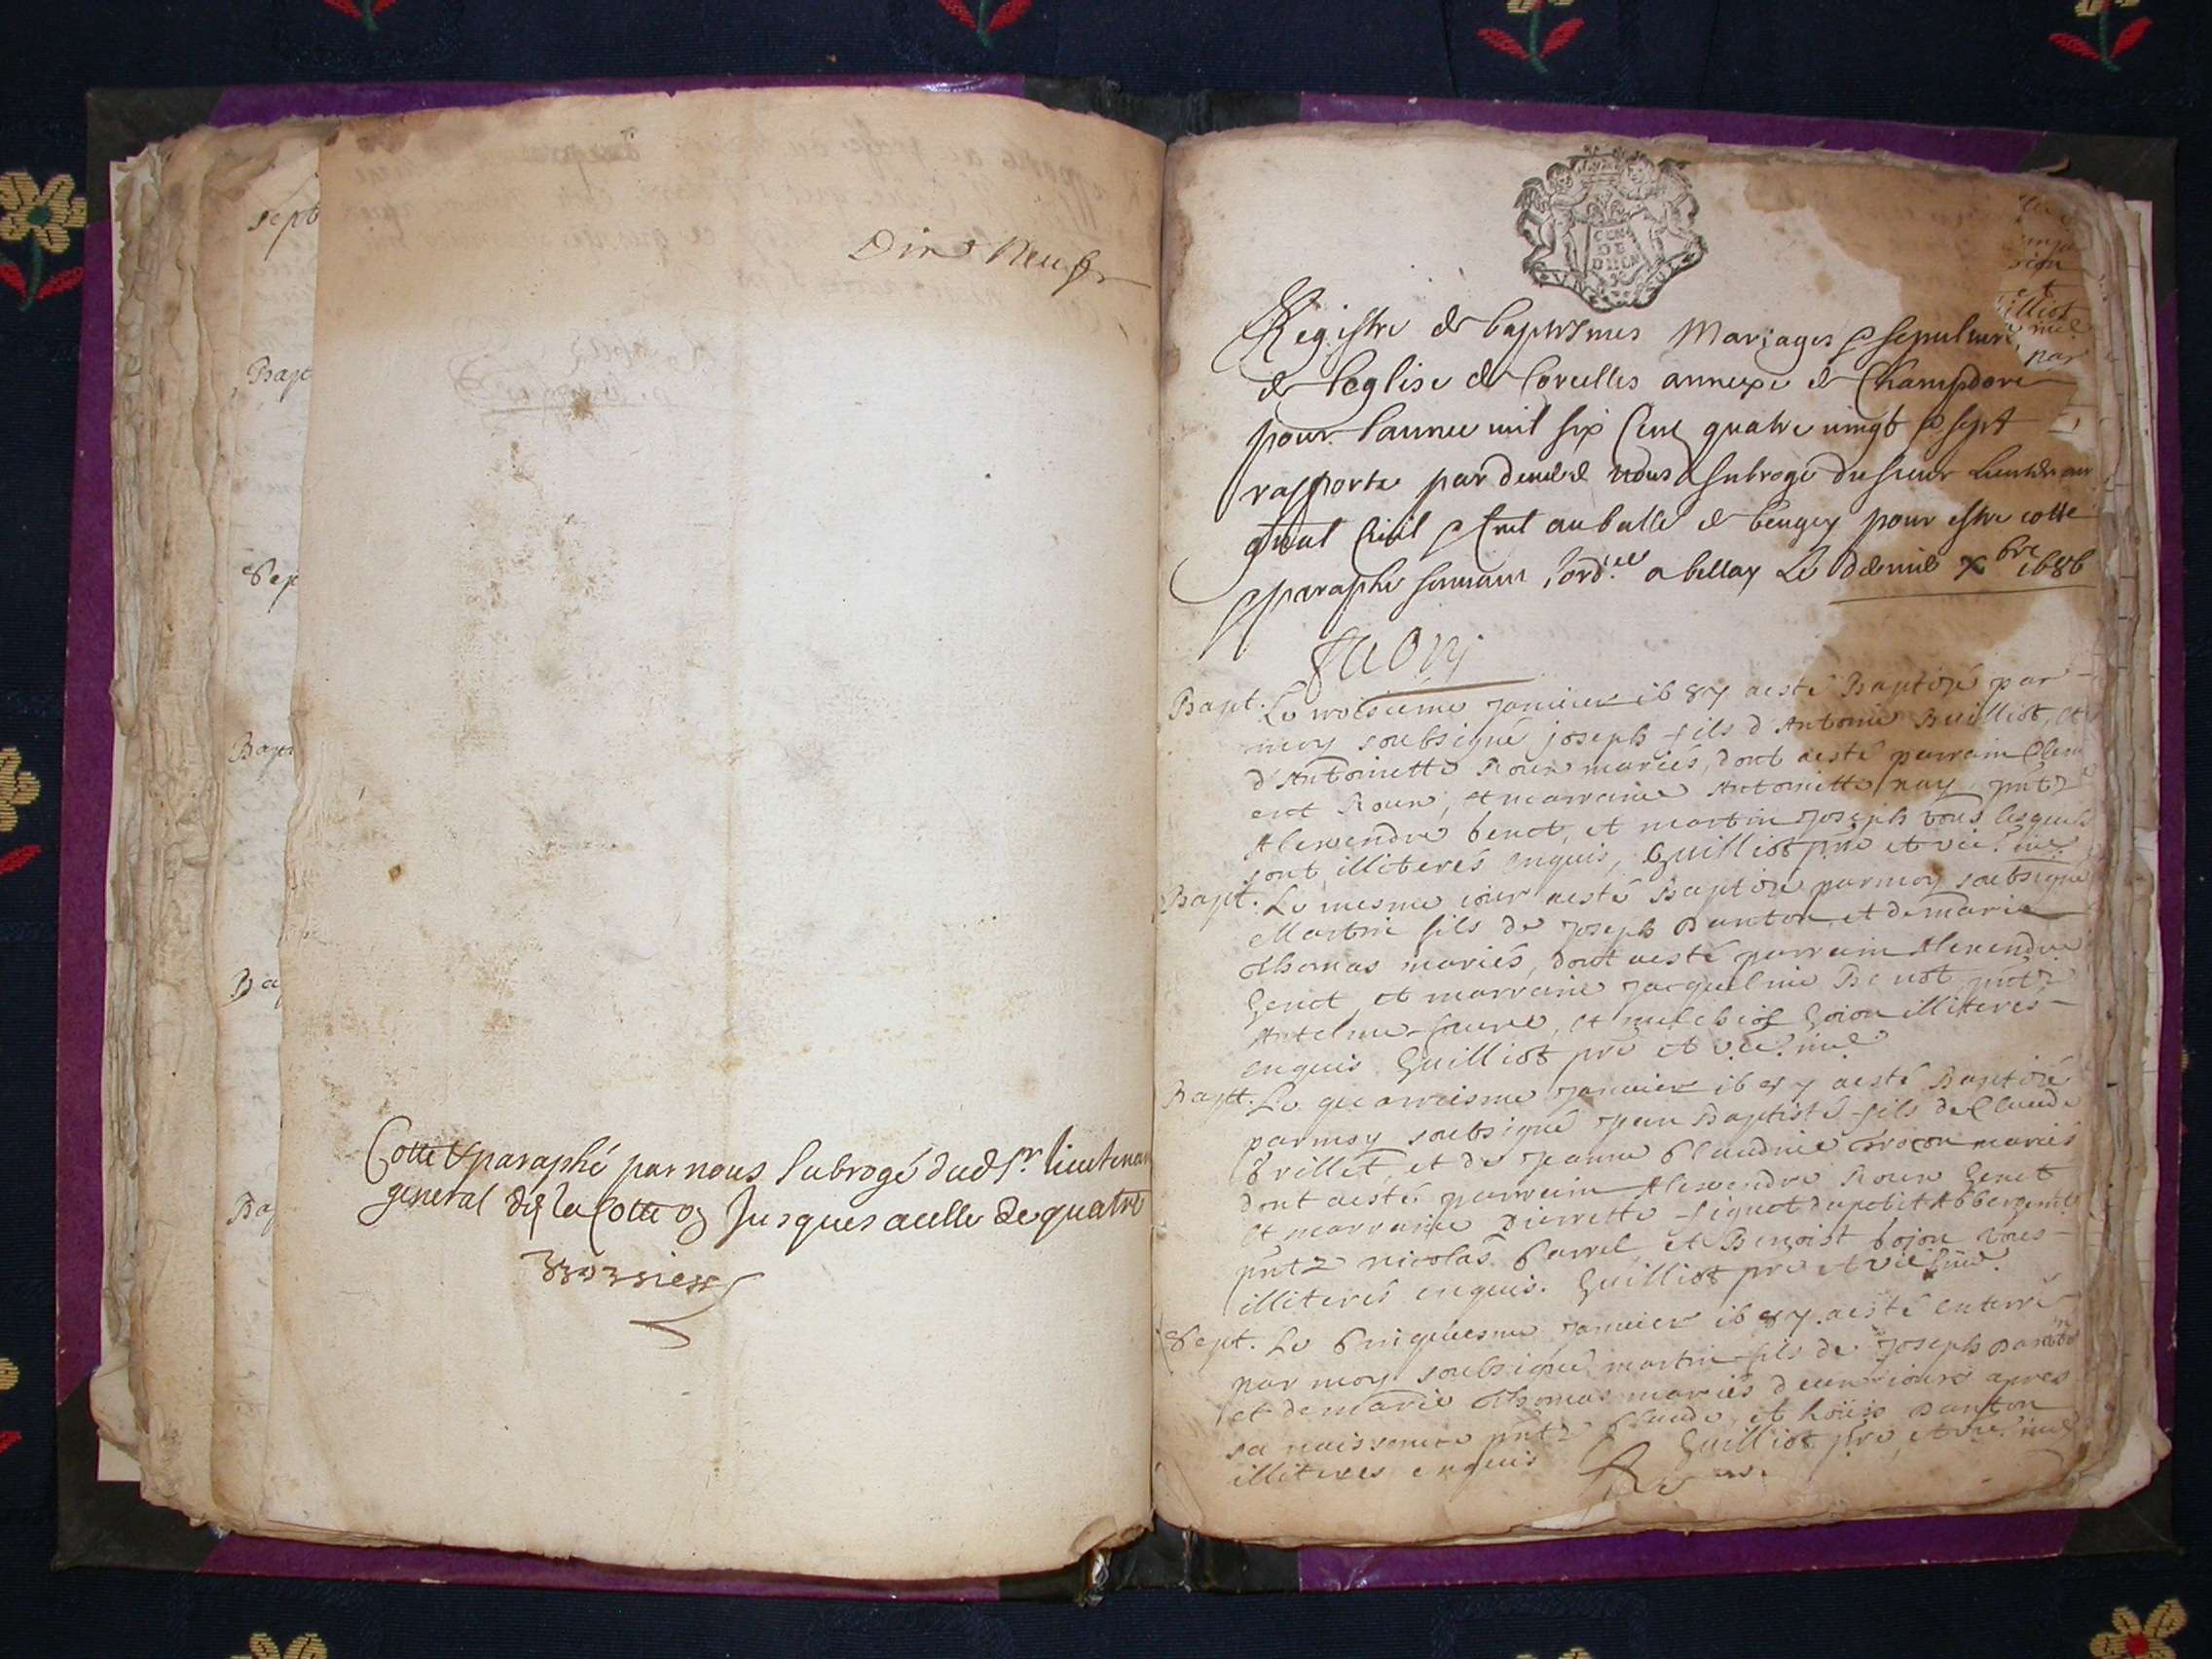 sept
Bapt
Sep
Bapt
Ba
Ba
Dix Neuf
Cotté & paraphé par nous subrogé dud Sr. lieutenan
general de la Cotte Jusques a celle de quatre
CEN
DE
DIION
Registre de baptesmes Mariages & sepulture
de leglise de Corcelles annexe de Champdore
pour lannee mil six Cent quatre vingt & sept
rapporte par devers nous subrogé du sieur Lieutenan
gnal Civil & Crel au balle de beugey pour estre cotte
& paraphe suivant lord.ce a bellay Le dernie Xbre 1686
Bapt. Le troisieme janvier 1687 aesté Baptizé par
moy soubsigné joseph fils d'Antoine Builliot, et
d'Antoinette Roux mariés, dont aesté parrain Clem
ent Roux, et marraine Antoinette nay, pntz
Alexendre benet, et martin joseph tous lesquels
sont illiterés enquis, Guilliot pre et vic.
Bapt. Le mesme iour aesté Baptizé par moy soubsigné
Martin fils de joseph Danton et de marie
Thomas mariés, dont aesté parrain Alexendre
Genet, et marraine jacqueline Benot pntz
Antelme favre, et melchior Goion illiterés
enquis Guilliot pre et vic.
Bapt. Le quatriesme janvier 1687 aesté Baptizé
par moy soubsigné jean Baptiste fils de Claude
Brillet, et de jeanne Claudine mariés
dont aesté parrain Alexendre Roux Genet
et marraine Pierrette figuet du petit Abbergemt
pntz nicolas Carrel, et Benoist bojon tous
illiterés enquis. Guilliot pre et vic
Sept. Le Cinquiesme janvier 1687 aesté enterré
par moy soubsigné martin fils de joseph Danton
et de marie Thomas mariés deux iours apres
sa naissance pntz Claude, et Loüis Danton
illiterés enquis Guilliot pre, et vic.